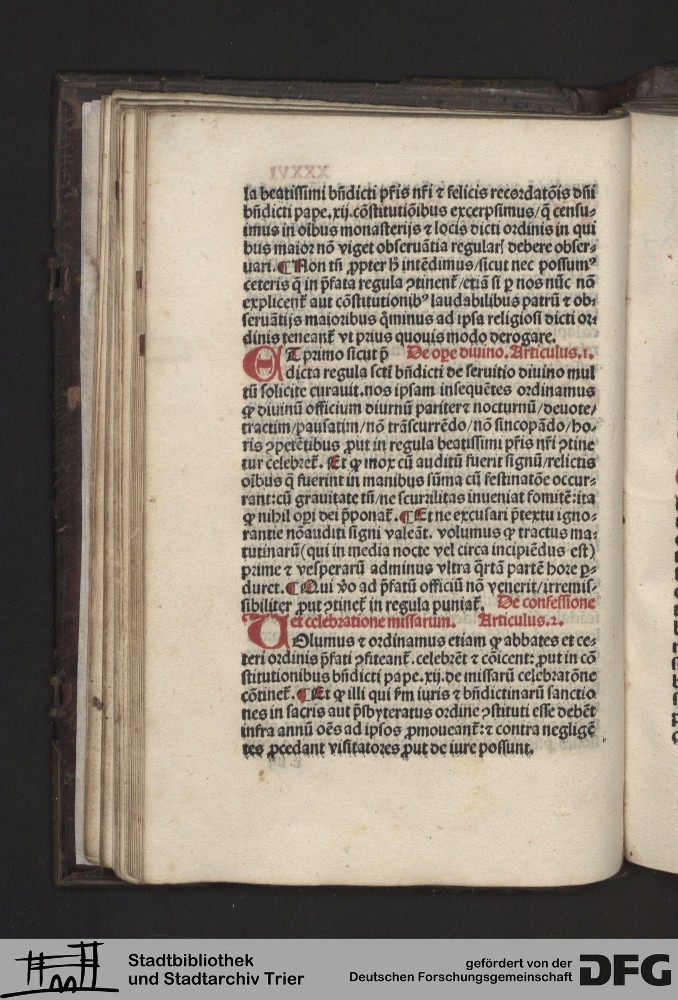 la beatissimi bñdicti pr̃is nr̃i ⁊ felicis recordatõis dñi
bñdicti pape.xij.cõstitutiõibus excerpsimus/q̃ censu⸗
imus in oĩbus monasterijs ⁊ locis dicti ordinis in qui
bus maior nõ viget obseruãtia regularꝭ debere obser⸗
uari.¶Non tñ ꝓpter h̃ intẽdimus/sicut nec possumꝰ
ceteris q̃ in p̃fata regula ꝯtinent᷑/etiã si ꝑ nos nũc nõ
explicent᷑ aut cõstitutionibꝰ laudabilibus patrũ ⁊ ob⸗
seruãtijs maioribus q̃minus ad ipsa religiosi dicti or⸗
dinis teneant᷑ vt prius quouis modo derogare.
ET primo sicut p̃ De oꝑe diuino. Articulus.1.
dicta regula scti bñdicti de seruitio diuino mul
tũ solicite curauit.nos ipsam insequẽtes ordinamus
ꝙ diuinũ officium diurnũ pariter ⁊ nocturnũ/deuote/
tractim/pausatim/nõ trãscurrẽdo/nõ sincopãdo/ho⸗
ris ꝯpetẽtibus ꝓut in regula beatissimi pr̃is nr̃i ꝯtine
tur celebret᷑. Et ꝙ mox cũ auditũ fuerit signũ/relictis
oĩbus q̃ fuerint in manibus sũma cũ festinatõe occur⸗
rant:cũ grauitate tñ/ne scurrilitas inueniat fomitẽ:ita
ꝙ nihil oꝑi dei p̃ponat᷑.¶Et ne excusari p̃textu igno⸗
rantie nõ auditi signi valeãt. volumus ꝙ tractus ma⸗
tutinarũ(qui in media nocte vel circa incipiẽdus est)
prime ⁊ vesperarũ adminus vltra q̃rtã partẽ hore ꝑ⸗
duret.¶Qui ṽo ad p̃fatũ officiũ nõ venerit/irremis⸗
sibiliter ꝓut ꝯtinet᷑ in regula puniat᷑. De confessione
et celebratione missarum. Articulus.2.
VOlumus ⁊ ordinamus etiam ꝙ abbates et ce⸗
teri ordinis p̃fati ꝯfiteant᷑.celebrẽt ⁊ cõicent:ꝓut in cõ
stitutionibus bñdicti pape.xij.de missarũ celebratõne
cõtinet᷑.¶Et ꝙ illi qui ẜm iuris ⁊ bñdictinarũ sanctio
nes in sacris aut p̃sbyteratus ordine ꝯstituti esse debẽt
infra annũ oẽs ad ipsos ꝓmoueant᷑:⁊ contra negligẽ
tes ꝓcedant visitatores ꝓut de iure possunt.
Stadtbibliothek
und Stadtarchiv Trier
gefördert von der
Deutschen Forschungsgemeinschaft
DFG